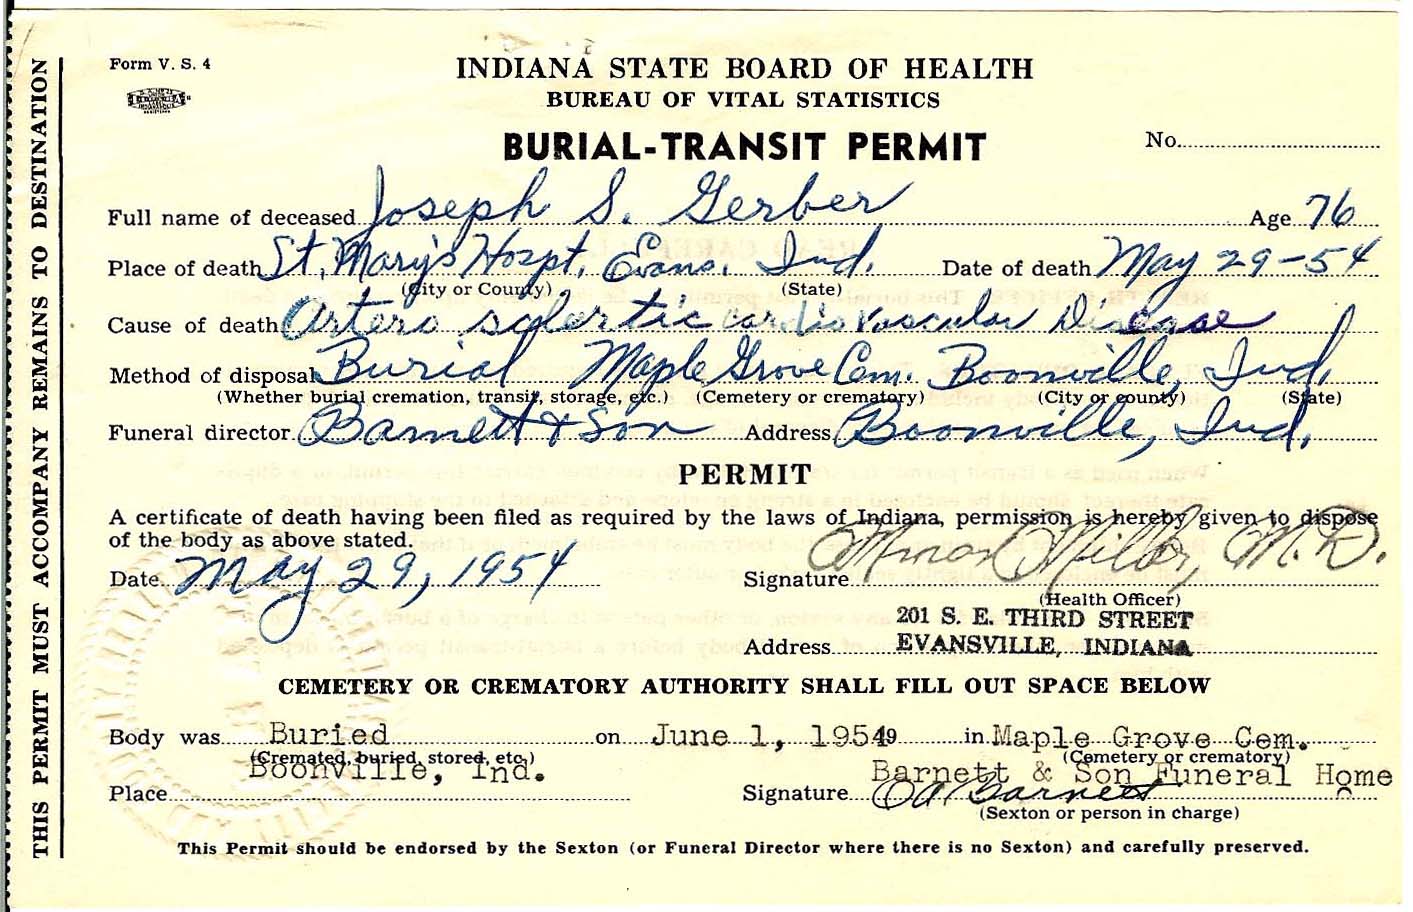 Form V. S. 4
INDIANA STATE BOARD OF HEALTH
BUREAU OF VITAL STATISTICS
BURIAL-TRANSIT PERMIT
No.
Full name of deceased Joseph S. Gerber Age 76
Place of death St. Mary's Hospt. Evans. Ind. Date of death May 29-54
(City or County) (State)
Cause of death Artero sclertic cardiovascular Disease
Method of disposal Burial Maple Grove Cem. Boonville, Ind.
(Whether burial cremation, transit, storage, etc.) (Cemetery or crematory) (City or county) (State)
Funeral director Barnett & Son Address Boonville, Ind.
PERMIT
A certificate of death having been filed as required by the laws of Indiana, permission is hereby given to dispose
of the body as above stated.
Date May 29, 1954 Signature M.D.
(Health Officer)
201 S. E. THIRD STREET
Address EVANSVILLE, INDIANA
CEMETERY OR CREMATORY AUTHORITY SHALL FILL OUT SPACE BELOW
Body was Buried on June 1, 1954 19 in Maple Grove Cem.
(Cremated, buried, stored, etc.) (Cemetery or crematory)
Boonville, Ind. Barnett & Son Funeral Home
Place Signature Barnett
(Sexton or person in charge)
This Permit should be endorsed by the Sexton (or Funeral Director where there is no Sexton) and carefully preserved.
THIS PERMIT MUST ACCOMPANY REMAINS TO DESTINATION